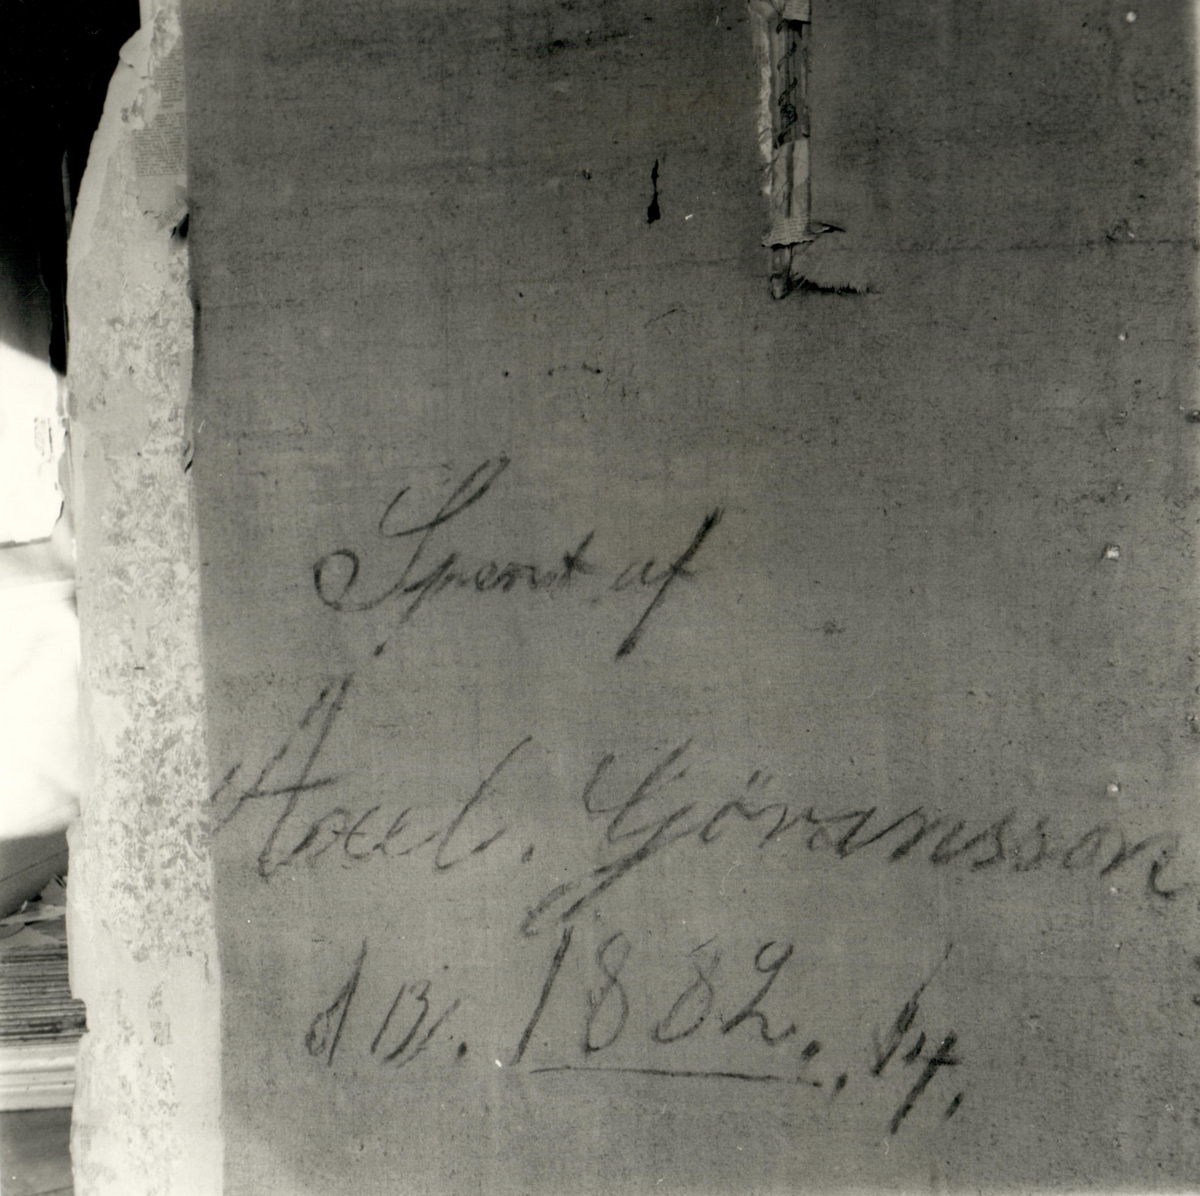 Spent af
Axel. Göransson
d 13/. 1882. 14.